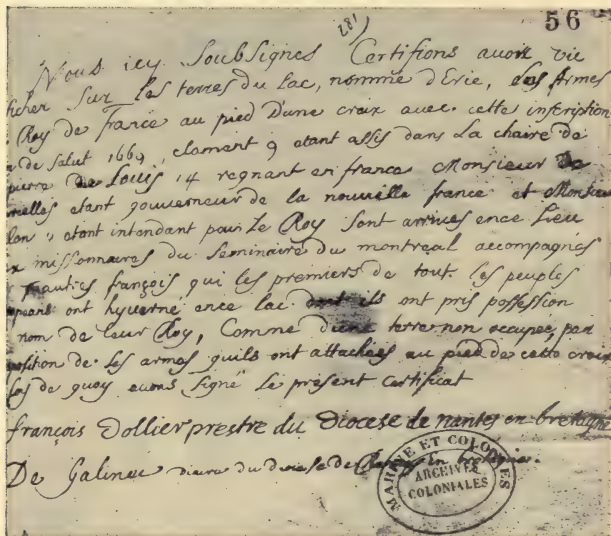 281
56
Nous icy Soubsignés Certifions avoir vie
ficher Sur les terres du Lac, nommé d'Erié, des Armes
Roy de france au pied D'une croix avec cette inscription
de Salut 1669, clement 9 etant assis dans La chaire de
pierre Louis 14 regnant en france Monsieur de
rcelles etant gouverneur de la nouvelle france et Monsieur
lon, etant intendant pour Le Roy Sont arrivés ence Lieu
x missonnaires du Seminaire du montreal accompagnés
autres françois qui les premiers de tout les peuples
opeans ont hyverné ence lac dont ils ont pris possession
nom de leur Roy, Comme d'une terre non occupée, par
position de Ses armes quils ont attachées au pied de cette croix
de quoy avons Signé le présent Certificat
françois Dollier prestre du Diocese de nantes en bretagne
De Galineé diacre du diocese de en bretagne.
MARINE ET COLONIES
ARCHIVES
COLONIALES